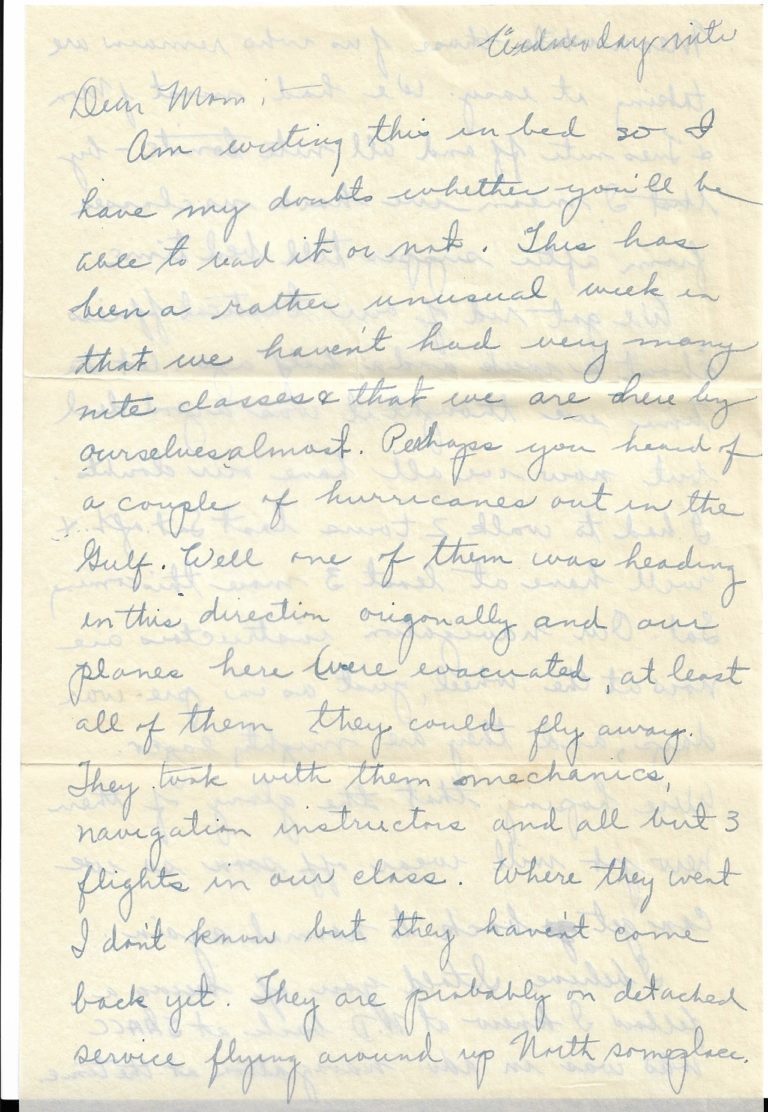 Wednesday nite
Dear Mom;
Am writing this in bed so I
have my doubts whether you'll be
able to read it or not. This has
been a rather unusual week in
that we haven't had very many
nite classes & that we are here by
ourselves almost. Perhaps you heard of
a couple of hurricanes out in the
Gulf. Well one of them was heading
in this direction origonally and our
planes here were evacuated, at least
all of them they could fly away.
They took with them mechanics,
navigation instructors and all but 3
flights in our class. Where they went
I don't know but they haven't come
back yet. They are probably on detached
service flying around up North someplace.